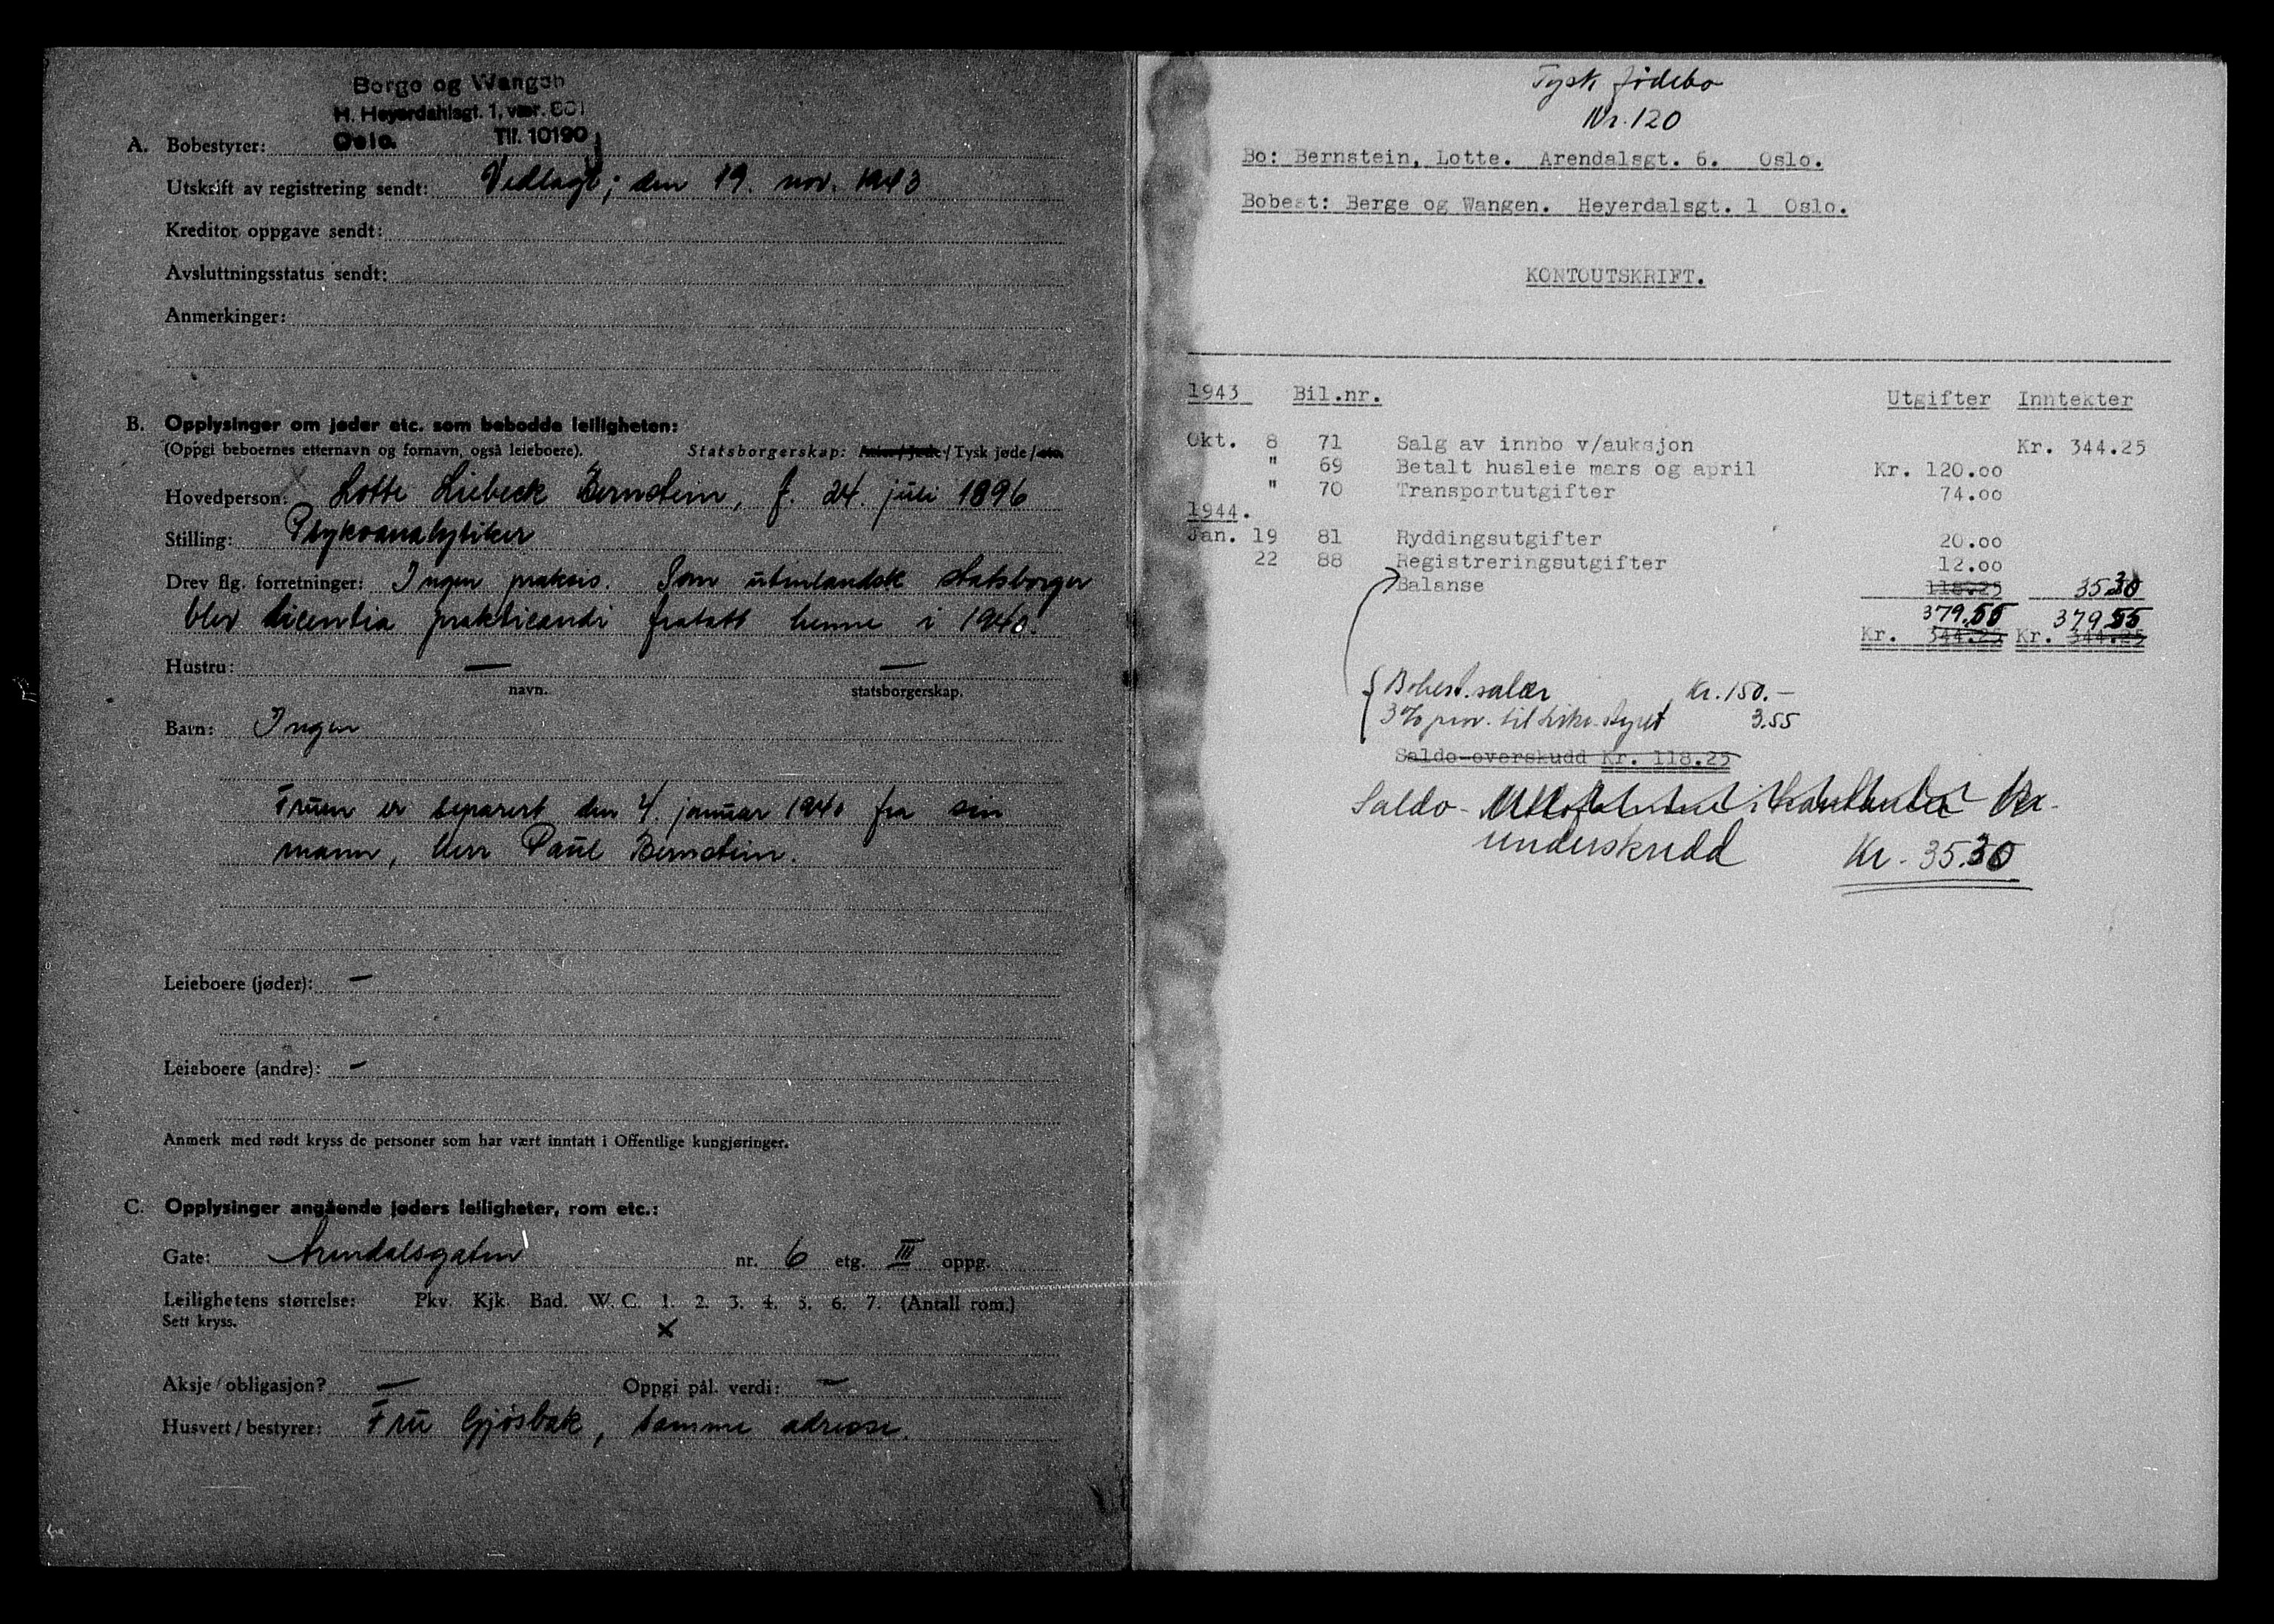 Berge og Wangen
H. Heyerdahlsgt. 1, vær. 601
Oslo. Tlf. 10190
A. Bobestyrer:
Utskrift av registrering sendt: Vedlagt; den 19. nov. 1943
Kreditor oppgave sendt:
Avsluttningsstatus sendt:
Anmerkinger:
B. Opplysinger om jøder etc. som bebodde leiligheten:
(Oppgi beboernes etternavn og fornavn, også leieboere). Statsborgerskap: / Tysk jøde / etc.
Hovedperson: Lotte Liebeck Bernstein, f. 24. juli 1896
Stilling: Psykoanalytiker
Drev flg. forretninger: Ingen praksis. Som utenlandsk statsborger
blev licentia practicandi fratatt henne i 1940.
Hustru: — —
navn. statsborgerskap.
Barn: Ingen
Fruen er separert den 4. januar 1940 fra sin
mann, Herr Paul Bernstein.
Leieboere (jøder): —
Leieboere (andre): —
Anmerk med rødt kryss de personer som har vært inntatt i Offentlige kungjøringer.
C. Opplysinger angående jøders leiligheter, rom etc.:
Gate: Arendalsgaten nr. 6 etg. III oppg.
Leilighetens størrelse: Pkv. Kjk. Bad. W. C. 1. 2. 3. 4. 5. 6. 7. (Antall rom.)
Sett kryss. x
Aksje / obligasjon? — Oppgi pål. verdi: —
Husvert / bestyrer: Fru Gjøsbak, samme adresse.
Tysk jødebo
Nr. 120
Bo: Bernstein, Lotte. Arendalsgt. 6. Oslo.
Bobest: Berge og Wangen. Heyerdalsgt. 1 Oslo.
KONTOUTSKRIFT.
1943 Bil.nr. Utgifter Inntekter
Okt. 8 71 Salg av innbo v/auksjon Kr. 344.25
" 69 Betalt husleie mars og april Kr. 120.00
" 70 Transportutgifter 74.00
1944.
Jan. 19 81 Ryddingsutgifter 20.00
22 88 Registreringsutgifter 12.00
Balanse 118.25 35.30
379.55 379.55
Kr. 344.25 Kr. 344.25
Bobest. salær Kr. 150.—
3% prov. til 3.55
Saldo-overskudd Kr. 118.25
Saldo- Kr.
underskudd Kr. 35.30